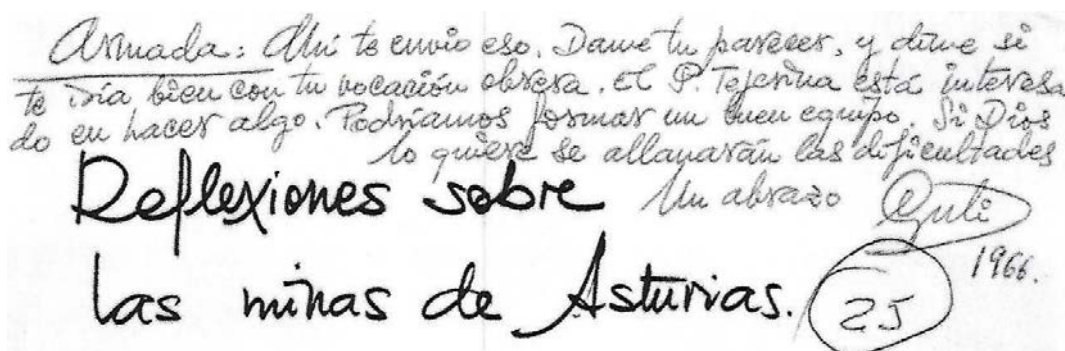 Armada: Ahí te envío eso. Dame tu parecer, y dime si
te iría bien con tu vocación obrera. El P. Tejerina está interesa
do en hacer algo. Podríamos formar un buen equipo. Si Dios
lo quiere se allanarán las dificultades
Un abrazo Guti
1966.
Reflexiones sobre
las minas de Asturias.
25